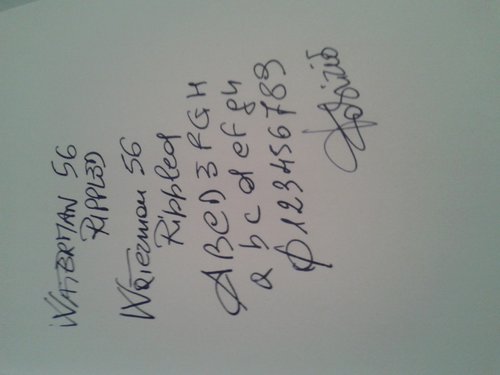 WATERMAN 56
RIPPLED
Waterman 56
Rippled
ABCD3FGH
abcdefgh
0123456789
Fabrizio